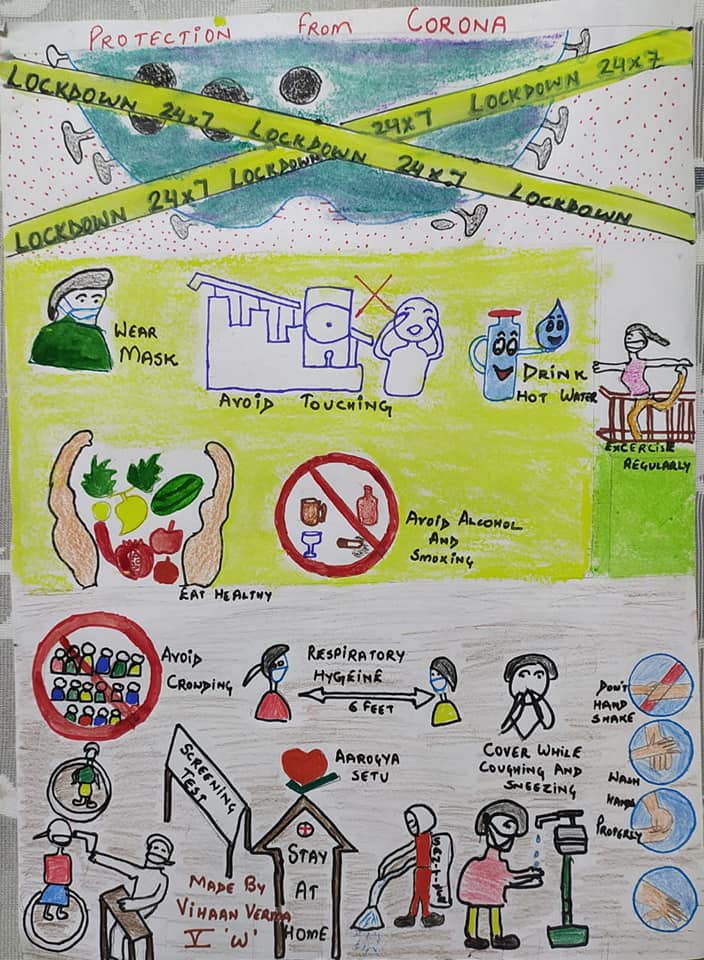 PROTECTION FROM CORONA
LOCKDOWN 24x7 LOCKDOWN 24x7 LOCKDOWN
LOCKDOWN 24x7 LOCKDOWN 24x7 LOCKDOWN 24x7
WEAR
MASK
AVOID TOUCHING
DRINK
HOT WATER
EXCERCISE
REGULARLY
EAT HEALTHY
AVOID ALCOHOL
AND
SMOKING
AVOID
CRONDING
RESPIRATORY
HYGEINE
6 FEET
COVER WHILE
COUGHING AND
SNEEZING
DON'T
HAND
SHAKE
WASH
HANDS
PROPERLY
SCREENING
TEST
AAROGYA
SETU
STAY
AT
HOME
MADE BY
VIHAAN VERMA
V 'W'